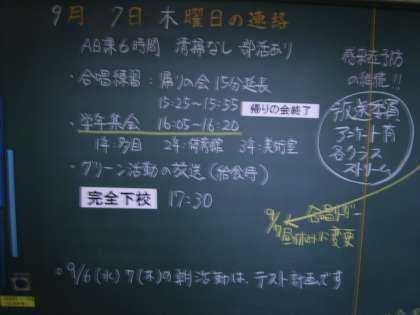 9月 7日 木曜日の連絡
AB業6時間 清掃なし 部活あり
・合唱練習：帰りの会15分延長
15:25〜15:35 帰りの会終了
・学年集会 16:05〜16:20
1年：多目 2年：体育館 3年：美術室
・グリーン活動の放送（給食時）
完全下校 17:30
※9/6(水)7(木)の朝活動は、テスト計画です
感染症予防
の継続!!
放送委員
アンケート有
各クラス
ストリーム
合唱リーダー
9/7昼休みに変更